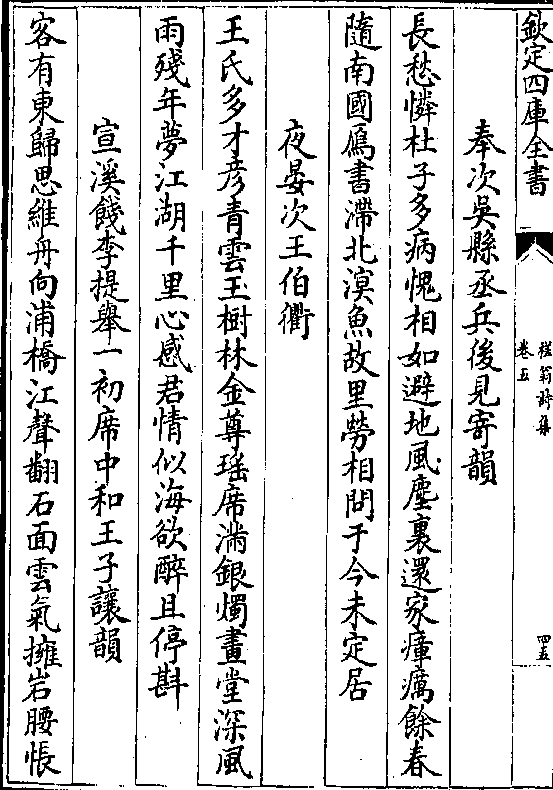 欽定四庫全書
槎翁詩集
卷五
四五
奉次吳縣丞兵後見寄韻
長愁憐杜子多病愧相如避地風塵裏還家瘴癘餘春
隨南國鴈書滯北溟魚故里勞相問于今未定居
夜宴次王伯衢
王氏多才彦青雲玉樹林金尊瑶席滿銀燭畫堂深風
雨殘年夢江湖千里心感君情似海欲醉且停斟
宣溪餞李提舉一初席中和王子讓韻
客有東歸思維舟向浦橋江聲翻石面雲氣擁岩腰悵